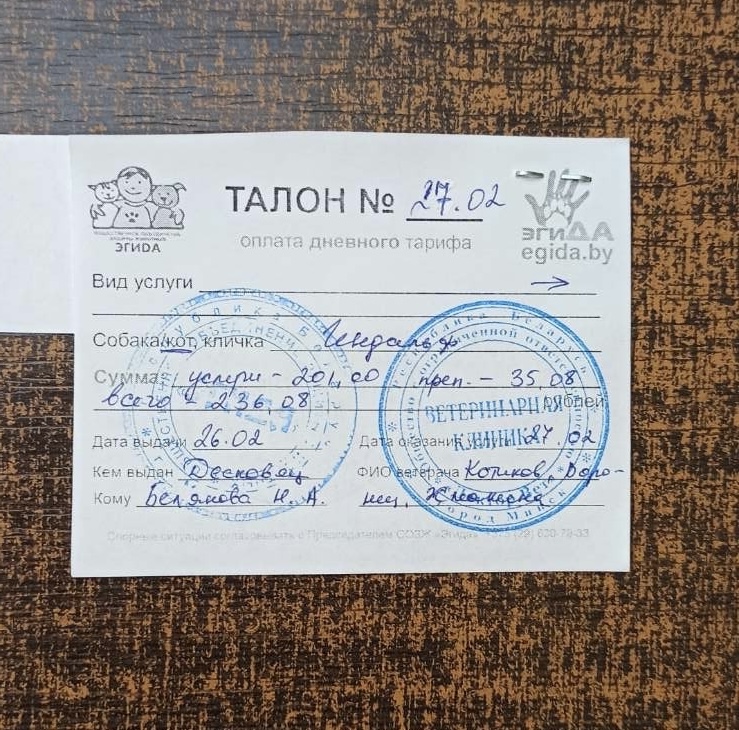 ТАЛОН № 27.02
оплата дневного тарифа
ЭГИДА
эгиДА
egida.by
Вид услуги →
Собака/кот, кличка
Сумма услуги - 201,00 преп. - 35,08
всего - 236,08 рублей
Дата выдачи 26.02 Дата оказания 27.02
Кем выдан Десковец ФИО ветврача Котиков, Воро-
Кому Белякова Н.А. нец,
Спорные ситуации согласовывать с Председателем
Республика Беларусь
ВЕТЕРИНАРНАЯ
КЛИНИКА
город Минск